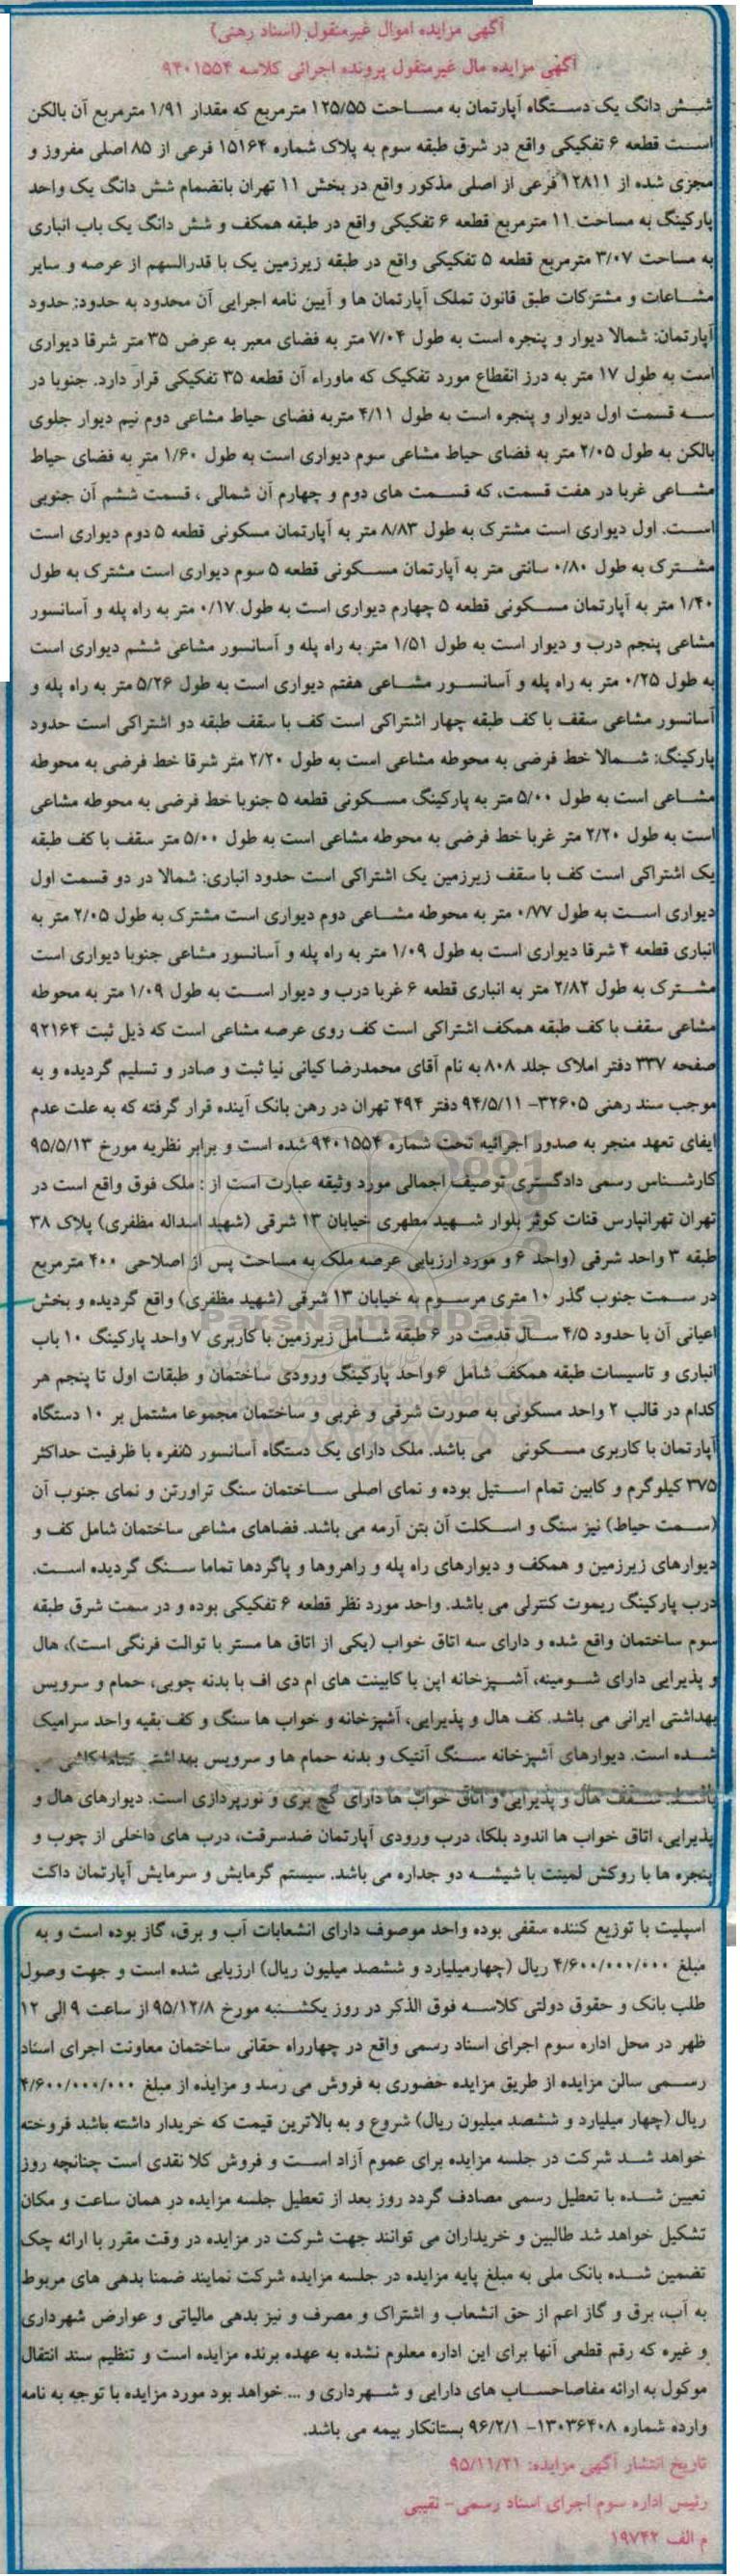 آگهی مزایده اموال غیرمنقول (اسناد رهنی)
آگهی مزایده مال غیرمنقول پرونده اجرائی کلاسه ۹۴۰۱۵۵۴
شش دانگ یک دستگاه آپارتمان به مساحت ۱۲۵/۵۵ مترمربع که مقدار ۱/۹۱ مترمربع آن بالکن
است قطعه ۶ تفکیکی واقع در شرق طبقه سوم به پلاک شماره ۱۵۱۶۴ فرعی از ۸۵ اصلی مفروز و
مجزی شده از ۱۲۸۱۱ فرعی از اصلی مذکور واقع در بخش ۱۱ تهران بانضمام شش دانگ یک واحد
پارکینگ به مساحت ۱۱ مترمربع قطعه ۶ تفکیکی واقع در طبقه همکف و شش دانگ یک باب انباری
به مساحت ۳/۰۷ مترمربع قطعه ۵ تفکیکی واقع در طبقه زیرزمین یک با قدرالسهم از عرصه و سایر
مشاعات و مشترکات طبق قانون تملک آپارتمان ها و آیین نامه اجرایی آن محدود به حدود: حدود
آپارتمان: شمالا دیوار و پنجره است به طول ۷/۰۴ متر به فضای معبر به عرض ۳۵ متر شرقا دیواری
است به طول ۱۷ متر به درز انقطاع مورد تفکیک که ماوراء آن قطعه ۳۵ تفکیکی قرار دارد. جنوبا در
سه قسمت اول دیوار و پنجره است به طول ۴/۱۱ متربه فضای حیاط مشاعی دوم نیم دیوار جلوی
بالکن به طول ۲/۰۵ متر به فضای حیاط مشاعی سوم دیواری است به طول ۱/۶۰ متر به فضای حیاط
مشاعی غربا در هفت قسمت، که قسمت های دوم و چهارم آن شمالی ، قسمت ششم آن جنوبی
است. اول دیواری است مشترک به طول ۸/۸۳ متر به آپارتمان مسکونی قطعه ۵ دوم دیواری است
مشترک به طول ۰/۸۰ سانتی متر به آپارتمان مسکونی قطعه ۵ سوم دیواری است مشترک به طول
۱/۴۰ متر به آپارتمان مسکونی قطعه ۵ چهارم دیواری است به طول ۰/۱۷ متر به راه پله و آسانسور
مشاعی پنجم درب و دیوار است به طول ۱/۵۱ متر به راه پله و آسانسور مشاعی ششم دیواری است
به طول ۰/۲۵ متر به راه پله و آسانسور مشاعی هفتم دیواری است به طول ۵/۲۶ متر به راه پله و
آسانسور مشاعی سقف با کف طبقه چهار اشتراکی است کف با سقف طبقه دو اشتراکی است حدود
پارکینگ: شمالا خط فرضی به محوطه مشاعی است به طول ۲/۲۰ متر شرقا خط فرضی به محوطه
مشاعی است به طول ۵/۰۰ متر به پارکینگ مسکونی قطعه ۵ جنوبا خط فرضی به محوطه مشاعی
است به طول ۲/۲۰ متر غربا خط فرضی به محوطه مشاعی است به طول ۵/۰۰ متر سقف با کف طبقه
یک اشتراکی است کف با سقف زیرزمین یک اشتراکی است حدود انباری: شمالا در دو قسمت اول
دیواری است به طول ۰/۷۷ متر به محوطه مشاعی دوم دیواری است مشترک به طول ۲/۰۵ متر به
انباری قطعه ۴ شرقا دیواری است به طول ۱/۰۹ متر به راه پله و آسانسور مشاعی جنوبا دیواری است
مشترک به طول ۲/۸۲ متر به انباری قطعه ۶ غربا درب و دیوار است به طول ۱/۰۹ متر به محوطه
مشاعی سقف با کف طبقه همکف اشتراکی است کف روی عرصه مشاعی است که ذیل ثبت ۹۲۱۶۴
صفحه ۳۳۷ دفتر املاک جلد ۸۰۸ به نام آقای محمدرضا کیانی نیا ثبت و صادر و تسلیم گردیده و به
موجب سند رهنی ۳۲۶۰۵- ۹۴/۵/۱۱ دفتر ۴۹۴ تهران در رهن بانک آینده قرار گرفته که به علت عدم
ایفای تعهد منجر به صدور اجرائیه تحت شماره ۹۴۰۱۵۵۴ شده است و برابر نظریه مورخ ۹۵/۵/۱۳
کارشناس رسمی دادگستری توصیف اجمالی مورد وثیقه عبارت است از : ملک فوق واقع است در
تهران تهرانپارس قنات کوثر بلوار شهید مطهری خیابان ۱۳ شرقی (شهید اسداله مظفری) پلاک ۳۸
طبقه ۳ واحد شرقی (واحد ۶ و مورد ارزیابی عرصه ملک به مساحت پس از اصلاحی ۴۰۰ مترمربع
در سمت جنوب گذر ۱۰ متری مرسوم به خیابان ۱۳ شرقی (شهید مظفری) واقع گردیده و بخش
اعیانی آن با حدود ۴/۵ سال قدمت در ۶ طبقه شامل زیرزمین با کاربری ۷ واحد پارکینگ ۱۰ باب
انباری و تاسیسات طبقه همکف شامل ۶ واحد پارکینگ ورودی ساختمان و طبقات اول تا پنجم هر
کدام در قالب ۲ واحد مسکونی به صورت شرقی و غربی و ساختمان مجموعا مشتمل بر ۱۰ دستگاه
آپارتمان با کاربری مسکونی می باشد. ملک دارای یک دستگاه آسانسور ۵نفره با ظرفیت حداکثر
۳۷۵ کیلوگرم و کابین تمام استیل بوده و نمای اصلی ساختمان سنگ تراورتن و نمای جنوب آن
(سمت حیاط) نیز سنگ و اسکلت آن بتن آرمه می باشد. فضاهای مشاعی ساختمان شامل کف و
دیوارهای زیرزمین و همکف و دیوارهای راه پله و راهروها و پاگردها تماما سنگ گردیده است.
درب پارکینگ ریموت کنترلی می باشد. واحد مورد نظر قطعه ۶ تفکیکی بوده و در سمت شرق طبقه
سوم ساختمان واقع شده و دارای سه اتاق خواب (یکی از اتاق ها مستر با توالت فرنگی است)، هال
و پذیرایی دارای شومینه، آشپزخانه اپن با کابینت های ام دی اف با بدنه چوبی، حمام و سرویس
بهداشتی ایرانی می باشد. کف هال و پذیرایی، آشپزخانه و خواب ها سنگ و کف بقیه واحد سرامیک
شده است. دیوارهای آشپزخانه سنگ آنتیک و بدنه حمام ها و سرویس بهداشتی تماما کاشی می
باشد. سقف هال و پذیرایی و اتاق خواب ها دارای گچ بری و نورپردازی است. دیوارهای هال و
پذیرایی، اتاق خواب ها اندود بلکا، درب ورودی آپارتمان ضدسرقت، درب های داخلی از چوب و
پنجره ها با روکش لمینت با شیشه دو جداره می باشد. سیستم گرمایش و سرمایش آپارتمان داکت
اسپلیت با توزیع کننده سقفی بوده واحد موصوف دارای انشعابات آب و برق، گاز بوده است و به
مبلغ ۴/۶۰۰/۰۰۰/۰۰۰ ریال (چهارمیلیارد و ششصد میلیون ریال) ارزیابی شده است و جهت وصول
طلب بانک و حقوق دولتی کلاسه فوق الذکر در روز یکشنبه مورخ ۹۵/۱۲/۸ از ساعت ۹ الی ۱۲
ظهر در محل اداره سوم اجرای اسناد رسمی واقع در چهارراه حقانی ساختمان معاونت اجرای اسناد
رسمی سالن مزایده از طریق مزایده حضوری به فروش می رسد و مزایده از مبلغ ۴/۶۰۰/۰۰۰/۰۰۰
ریال (چهار میلیارد و ششصد میلیون ریال) شروع و به بالاترین قیمت که خریدار داشته باشد فروخته
خواهد شد شرکت در جلسه مزایده برای عموم آزاد است و فروش کلا نقدی است چنانچه روز
تعیین شده با تعطیل رسمی مصادف گردد روز بعد از تعطیل جلسه مزایده در همان ساعت و مکان
تشکیل خواهد شد طالبین و خریداران می توانند جهت شرکت در مزایده در وقت مقرر با ارائه چک
تضمین شده بانک ملی به مبلغ پایه مزایده در جلسه مزایده شرکت نمایند ضمنا بدهی های مربوط
به آب، برق و گاز اعم از حق انشعاب و اشتراک و مصرف و نیز بدهی مالیاتی و عوارض شهرداری
و غیره که رقم قطعی آنها برای این اداره معلوم نشده به عهده برنده مزایده است و تنظیم سند انتقال
موکول به ارائه مفاصاحساب های دارایی و شهرداری و ... خواهد بود مورد مزایده با توجه به نامه
وارده شماره ۱۳۰۳۶۴۰۸- ۹۶/۲/۱ بستانکار بیمه می باشد.
تاریخ انتشار آگهی مزایده: ۹۵/۱۱/۲۱
رئیس اداره سوم اجرای اسناد رسمی- نقیبی
م الف ۱۹۷۴۲
ParsNamadData